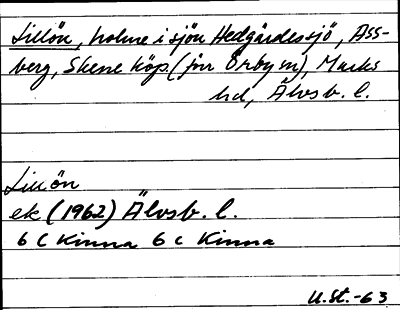 Lillön, holme i sjön Hedgärdessjö, Ass-
berg, Skene köp. (förr Örby sn), Marks
hd, Älvsb. l.
Lillön
ek (1962) Älvsb. l.
6 C Kinna 6 c Kinna
U.St.-63